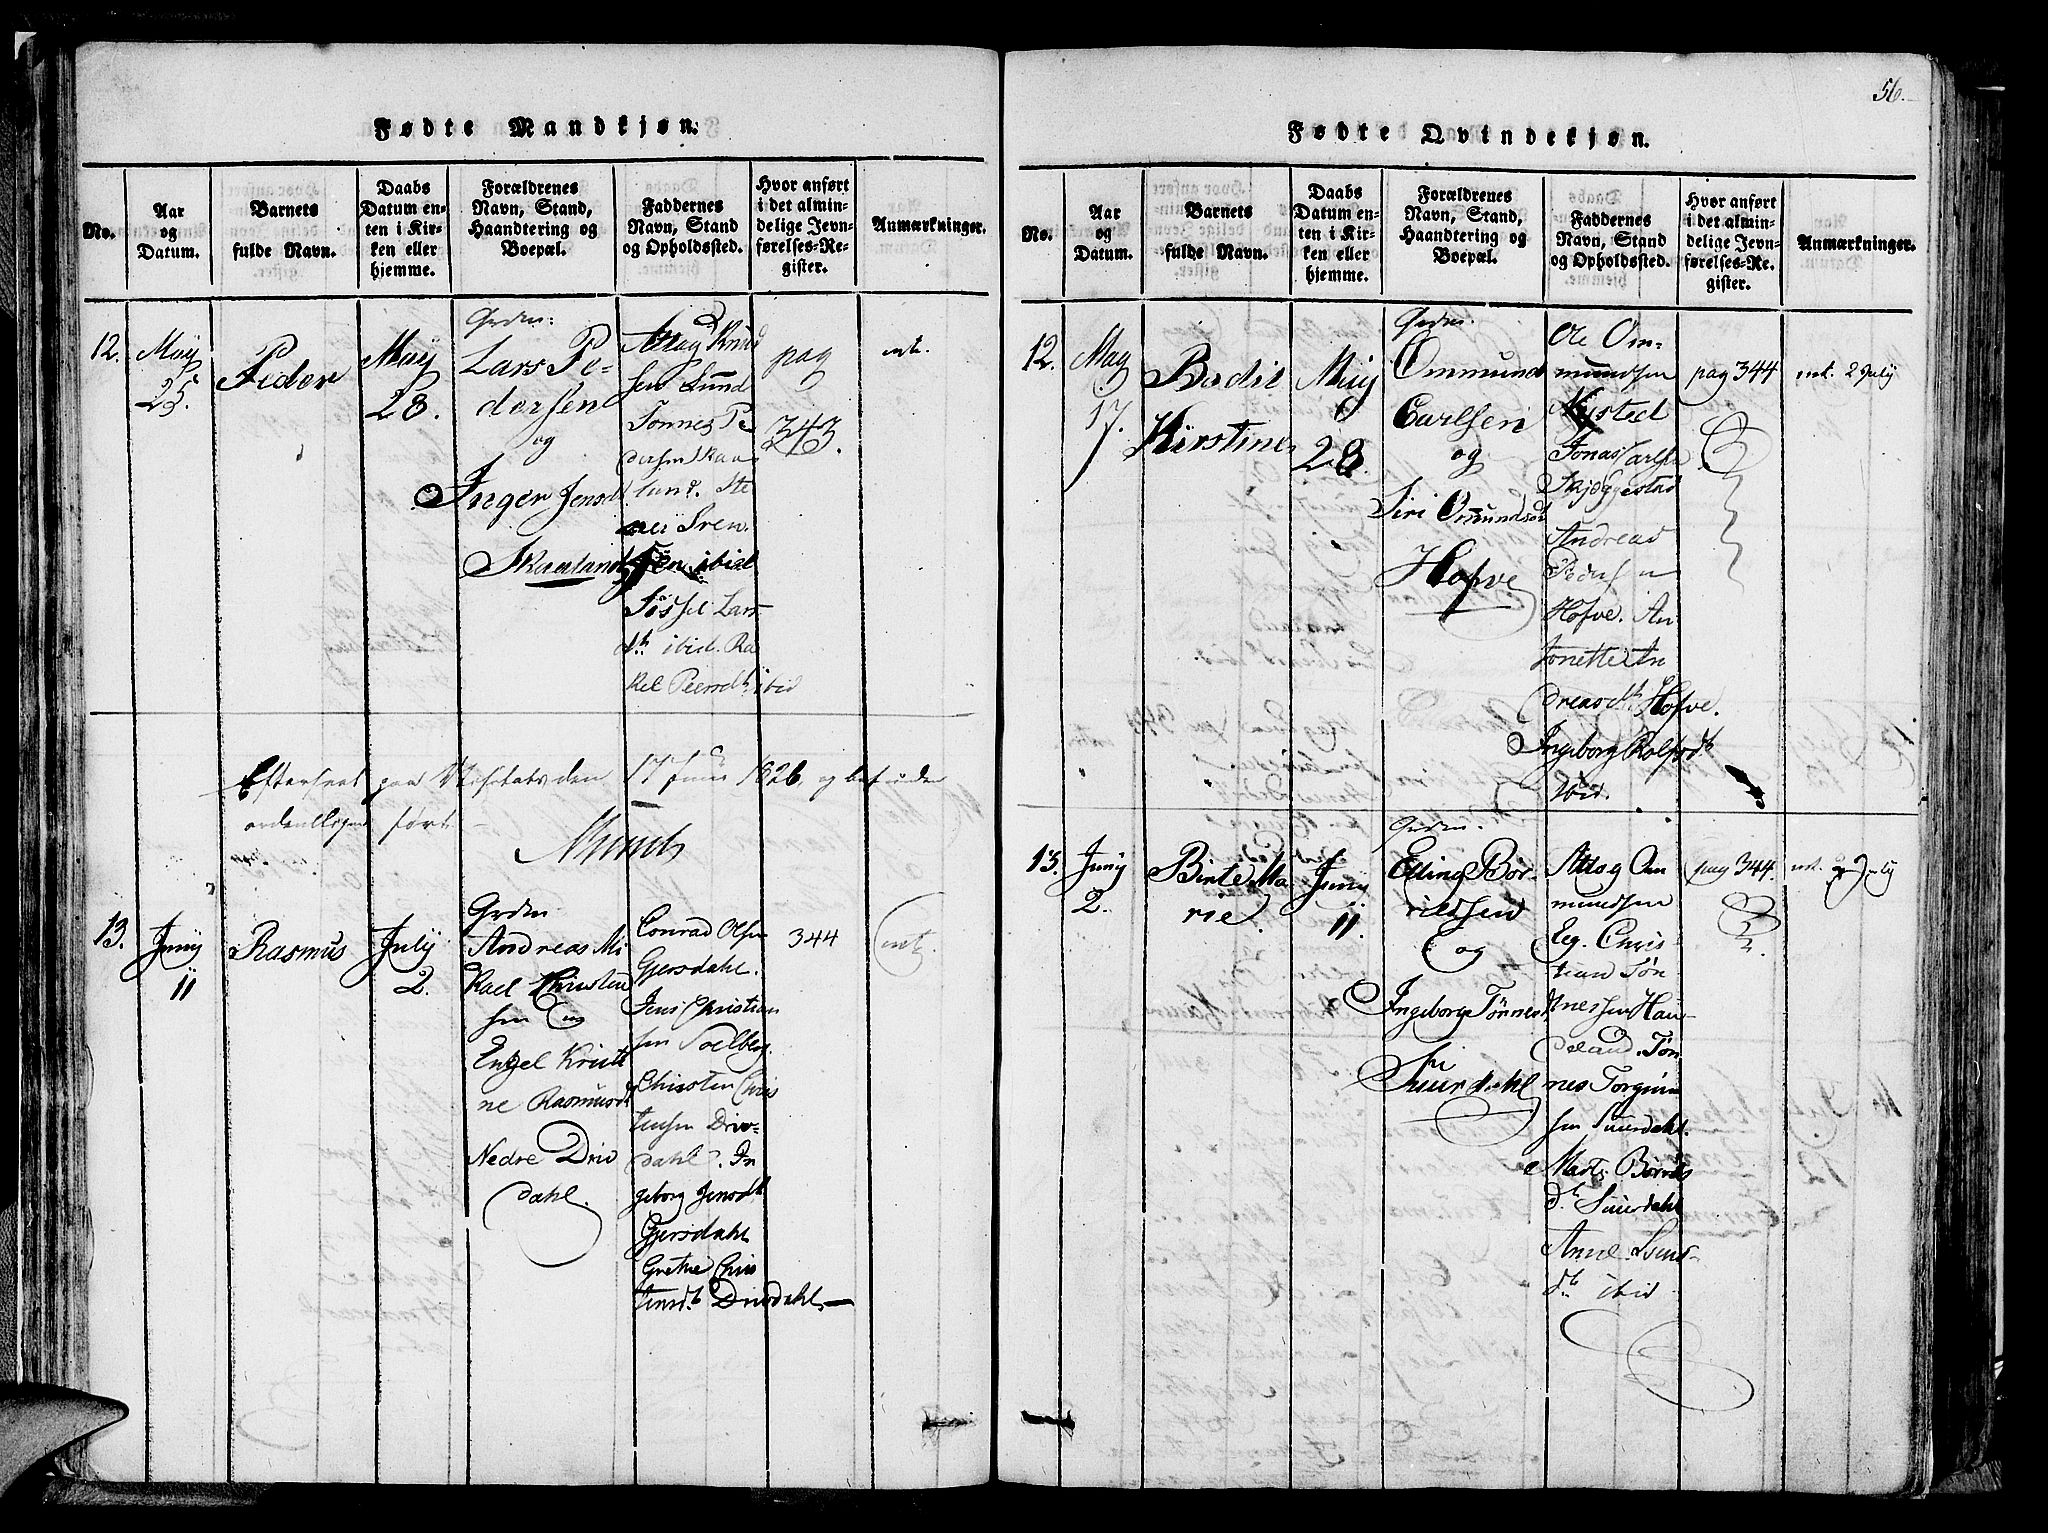 Fødte Mandkjøn.
No.
Aar
og
Datum.
Barnets
fulde Navn.
Daabs
Datum en-
ten i Kir-
ken eller
hjemme.
Forældrenes
Navn, Stand,
Haandtering og
Boepæl.
Faddernes
Navn, Stand
og Opholdssted.
Hvor anført
i det almin-
delige Jevn-
førelses-Re-
gister.
Anmærkninger.
12.
May
25.
Peder
May
28.
Grdm:
Lars Pe-
dersen
og
Inger Jensd
Skaaland
Attag Knud
sen Lund
Tønnes Pe
dersen Skaa
land.
Sven
sen ibid
Sissel Lars
dt ibid. Ra
kel Peersdt ibid
pag
343.
int.
Efterseet paa Visitats den 17 Juni 1826, og befunden
ordentligen ført
Munch
13.
Juny
11
Rasmus
July
2.
Grdm
Andreas Mi
kael Christen
sen og
Engel Kristi
ne Rasmusdt
Nedre Driv
dahl.
Conrad Olsen
Gjersdahl.
Jens Christian
sen Soelberg.
Christen Chris
tensen Driv-
dahl. In
geborg Jensdt
Gjersdahl
Grethe Chris
tensdt Drivdahl.
344
int
56.
Fødte Qvindekjøn.
No.
Aar
og
Datum.
Barnets
fulde Navn.
Daabs
Datum en-
ten i Kir-
ken eller
hjemme.
Forældrenes
Navn, Stand,
Haandtering og
Boepæl.
Faddernes
Navn, Stand
og Opholdssted.
Hvor anført
i det almin-
delige Jevn-
førelses-Re-
gister.
Anmærkninger.
12.
May
17.
Bodil
Kirstine
May
28.
Grdm.
Ommund
Carlsen
og
Siri Omundsdt
Hofve
Ole Om-
mundsen
Nysted
Jonas Carlsen
Skjeggestad
Andreas
Pedersen
Hofve. An
tonette An
dreasdt Hofve.
Ingeborg Rolfsdt
ibid.
pag 344
int. 2 July
13.
Juny
2.
Birte Ma
rie
Juny
11.
Grdm.
Elling Bør-
rildsen
og
Ingeborg Tønnesd
Suurdahl
Attag Om
mundsen
Eeg. Chris
tian Tøn
nessen Hau
geland. Tøn
nes Torgrim
sen Suurdahl.
Marte Børrils
dt Suurdahl
Anne Svens-
dt ibid
pag 344.
int. 2 July